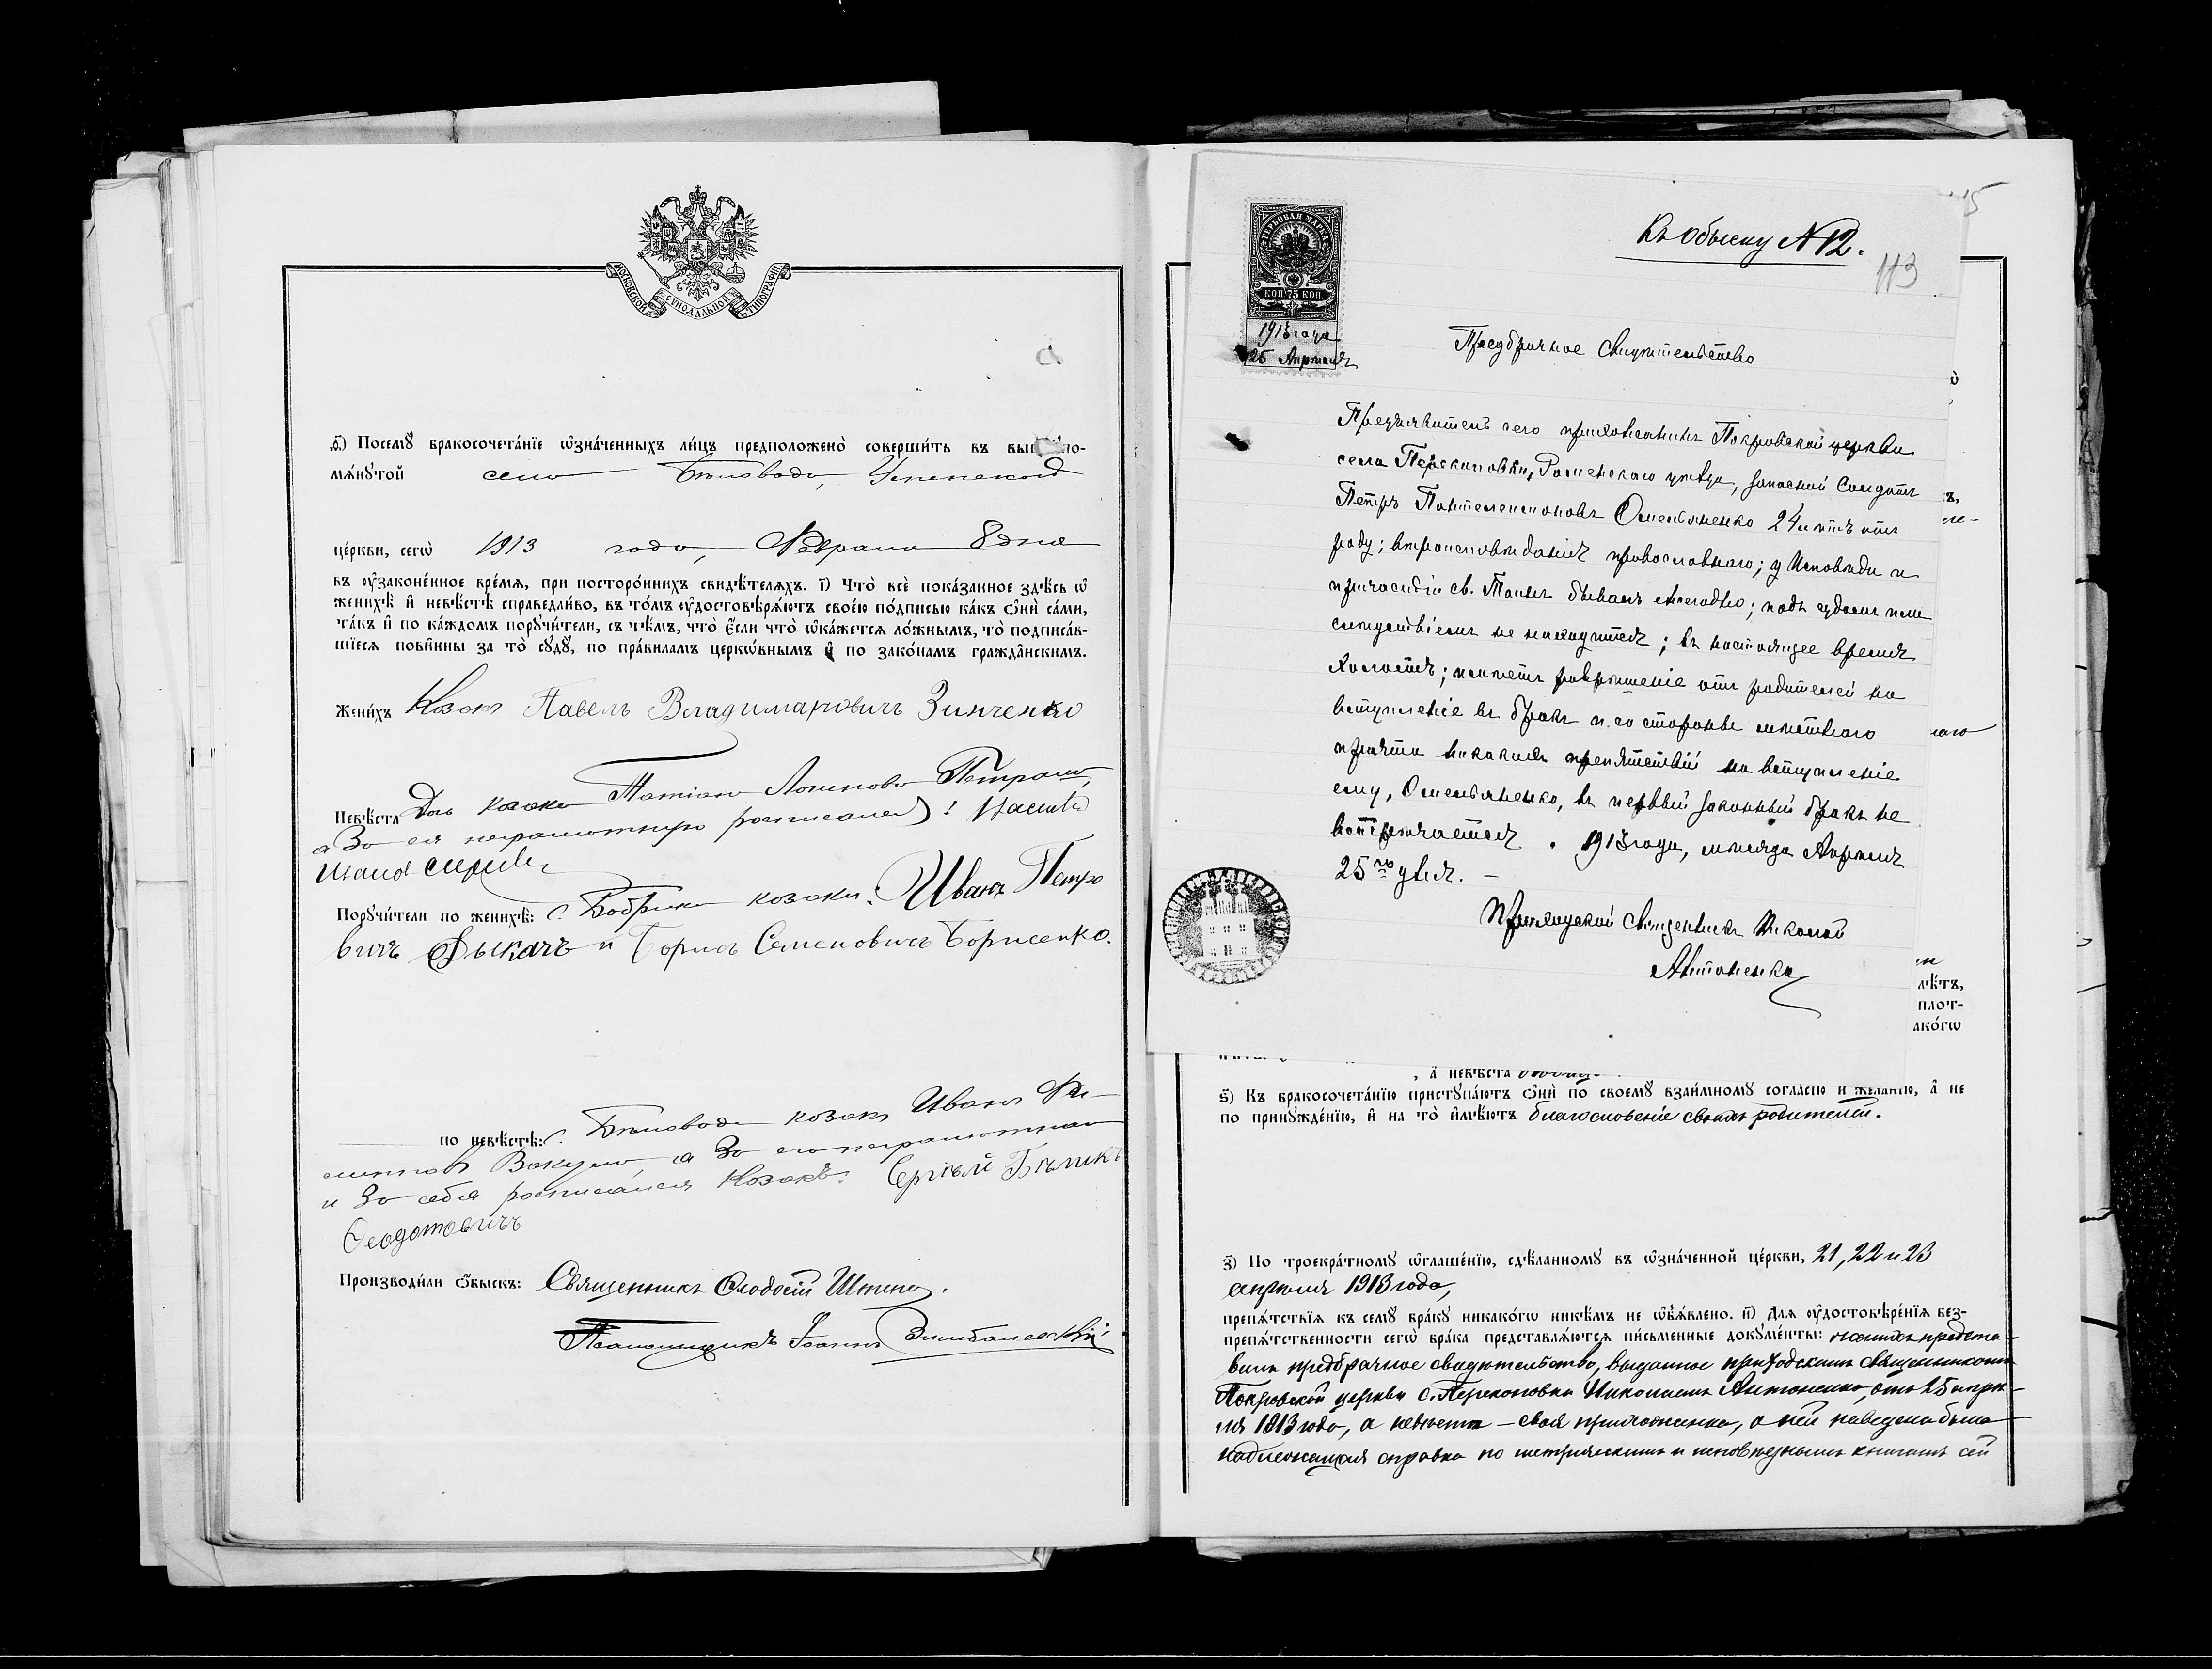 МОСКОВСКОЙ СУНОДАЛЬНОЙ ТИПОГРАФІИ
д҃) Посемꙋ̀ бракосочета́нїе ѡ҆зна́ченныхъ ли́цъ предположено̀ соверши́ть въ вы по-
мѧ́нꙋтой село Бѣловода, Успенской
це́ркви, сегѡ̀ 1913 года, Февраля 8 дня
въ ᲂу҆зако́не́нное вре́мѧ, при посторо́ннихъ свидѣ́телѧхъ. і҃) Что̀ всѐ пока́занное здѣ́сь ѡ҆
женихѣ̀ и҆ невѣ́стѣ справедли́во, въ то́мъ ᲂу҆достовѣрѧ́ютъ свое́ю по́дписью ка́къ ѻ҆нѝ са́ми,
та́къ и҆ по ка́ждомъ порꙋчи́тели, съ тѣ́мъ, что̀ є҆́сли что̀ ѡ҆ка́жетсѧ ло́жнымъ, то̀ подписа́в-
шїесѧ пови́нны за то̀ сꙋдꙋ̀, по пра́виламъ церко́внымъ и҆ по зако́намъ гражда́нскимъ.
Жени́хъ Козакъ Павелъ Владимировичъ Зинченко
Невѣ́ста Дочь козака Татіана Петраш,
а За ея неграмотную росписался:
Порꙋчи́тели по женихѣ̀: с. Бобрика козаки: Иванъ Петро
вичъ Дыкачъ и Борисъ Семеновичъ Борисенко.
по невѣ́стѣ: с. Бѣловода козакъ Иванъ Фи-
липповъ Вакула, а За его неграмотнаго
и За себя росписался Козакъ: Сергѣй Бѣликъ
Феодотовичъ
Производи́ли ѻ҆́быскъ: Священникъ Феодосій
Псаломщикъ Іоаннъ
Къ обыску № 12.
113
ГЕРБОВАЯ МАРКА
КОП 75 КОП
1913 года
25 Апрѣля
Предбрачное свидѣтельство
Предъявитель сего прихожанинъ Покровской церкви
села Перекоповки, Роменскаго уѣзда, запасный Солдатъ
Петръ Пантелеимоновъ Омельяненко 24 лѣтъ отъ
роду; вѣроисповѣданія православнаго; у Исповѣди и
причастія св. Таинъ бывалъ ежегодно; подъ судомъ или
слѣдствіемъ не находится; въ настоящее время
холостъ; имѣетъ разрѣшеніе отъ родителей на
вступленіе въ бракъ и со стороны мѣстнаго
причта никакихъ препятствій на вступленіе
ему, Омельяненко, въ первый законный бракъ не
встрѣчается. 1913 года, мѣсяца Апрѣля
25го дня.
Приходскій священникъ Николай
Антоненко
лѣ́тъ,
плот-
ако́гѡ
, а҆ невѣ́ста
ѕ҃) Къ бракосочета́нїю пристꙋпа́ютъ ѻ҆нѝ по своемꙋ̀ взаи́мномꙋ согла́сїю и жела́нїю, а҆ не
по принꙋжде́нїю, и҆ на то̀ и҆мѣ́ютъ благословеніе своихъ родителей.
з҃) По троекра́тномꙋ ѡ҆глаше́нїю, сдѣ́ланномꙋ въ ѡ҆зна́ченной це́ркви, 21, 22 и 23
апрѣля 1913 года,
препѧ́тствїѧ къ семꙋ̀ бра́кꙋ никако́гѡ никѣ́мъ не ѡ҆б̾ѧ́влено. и҃) Длѧ ᲂу҆достовѣре́нїѧ без-
препѧ́тственности сегѡ̀ бра́ка представлѧ́ютсѧ пи́сьменные докꙋме́нты: женихъ предста-
вилъ предбрачное свидѣтельство, выданное приходскимъ священникомъ
Покровской церкви с. Перекоповки Николаемъ Антоненко, отъ 25 апрѣ-
ля 1913 года, а невѣста – своя прихожанка, о ней наведена была
надлежащая справка по метрическимъ и исповѣднымъ книгамъ сей